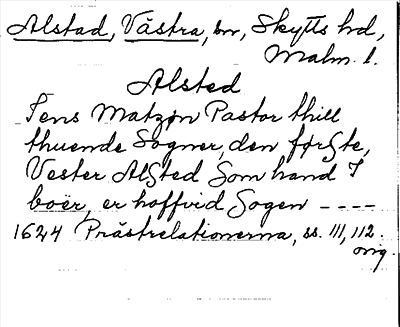 Alstad, Västra, sn, Skytts hd,
Malm. l.
Alsted
Jens Matzøn Pastor thill
thuende Sogner, den første,
Vester Alsted Som hand I
boër, er hoffvid Sogen ----
1624 Prästrelationerna, ss. 111, 112.
orig.